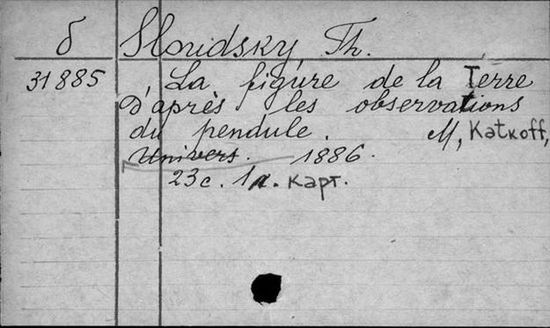 б Sloudsky Th.
31885 La figure de la Terre
D'après les observations
du pendule. M, Katkoff,
Univers. 1886.
23c. 1л. карт.